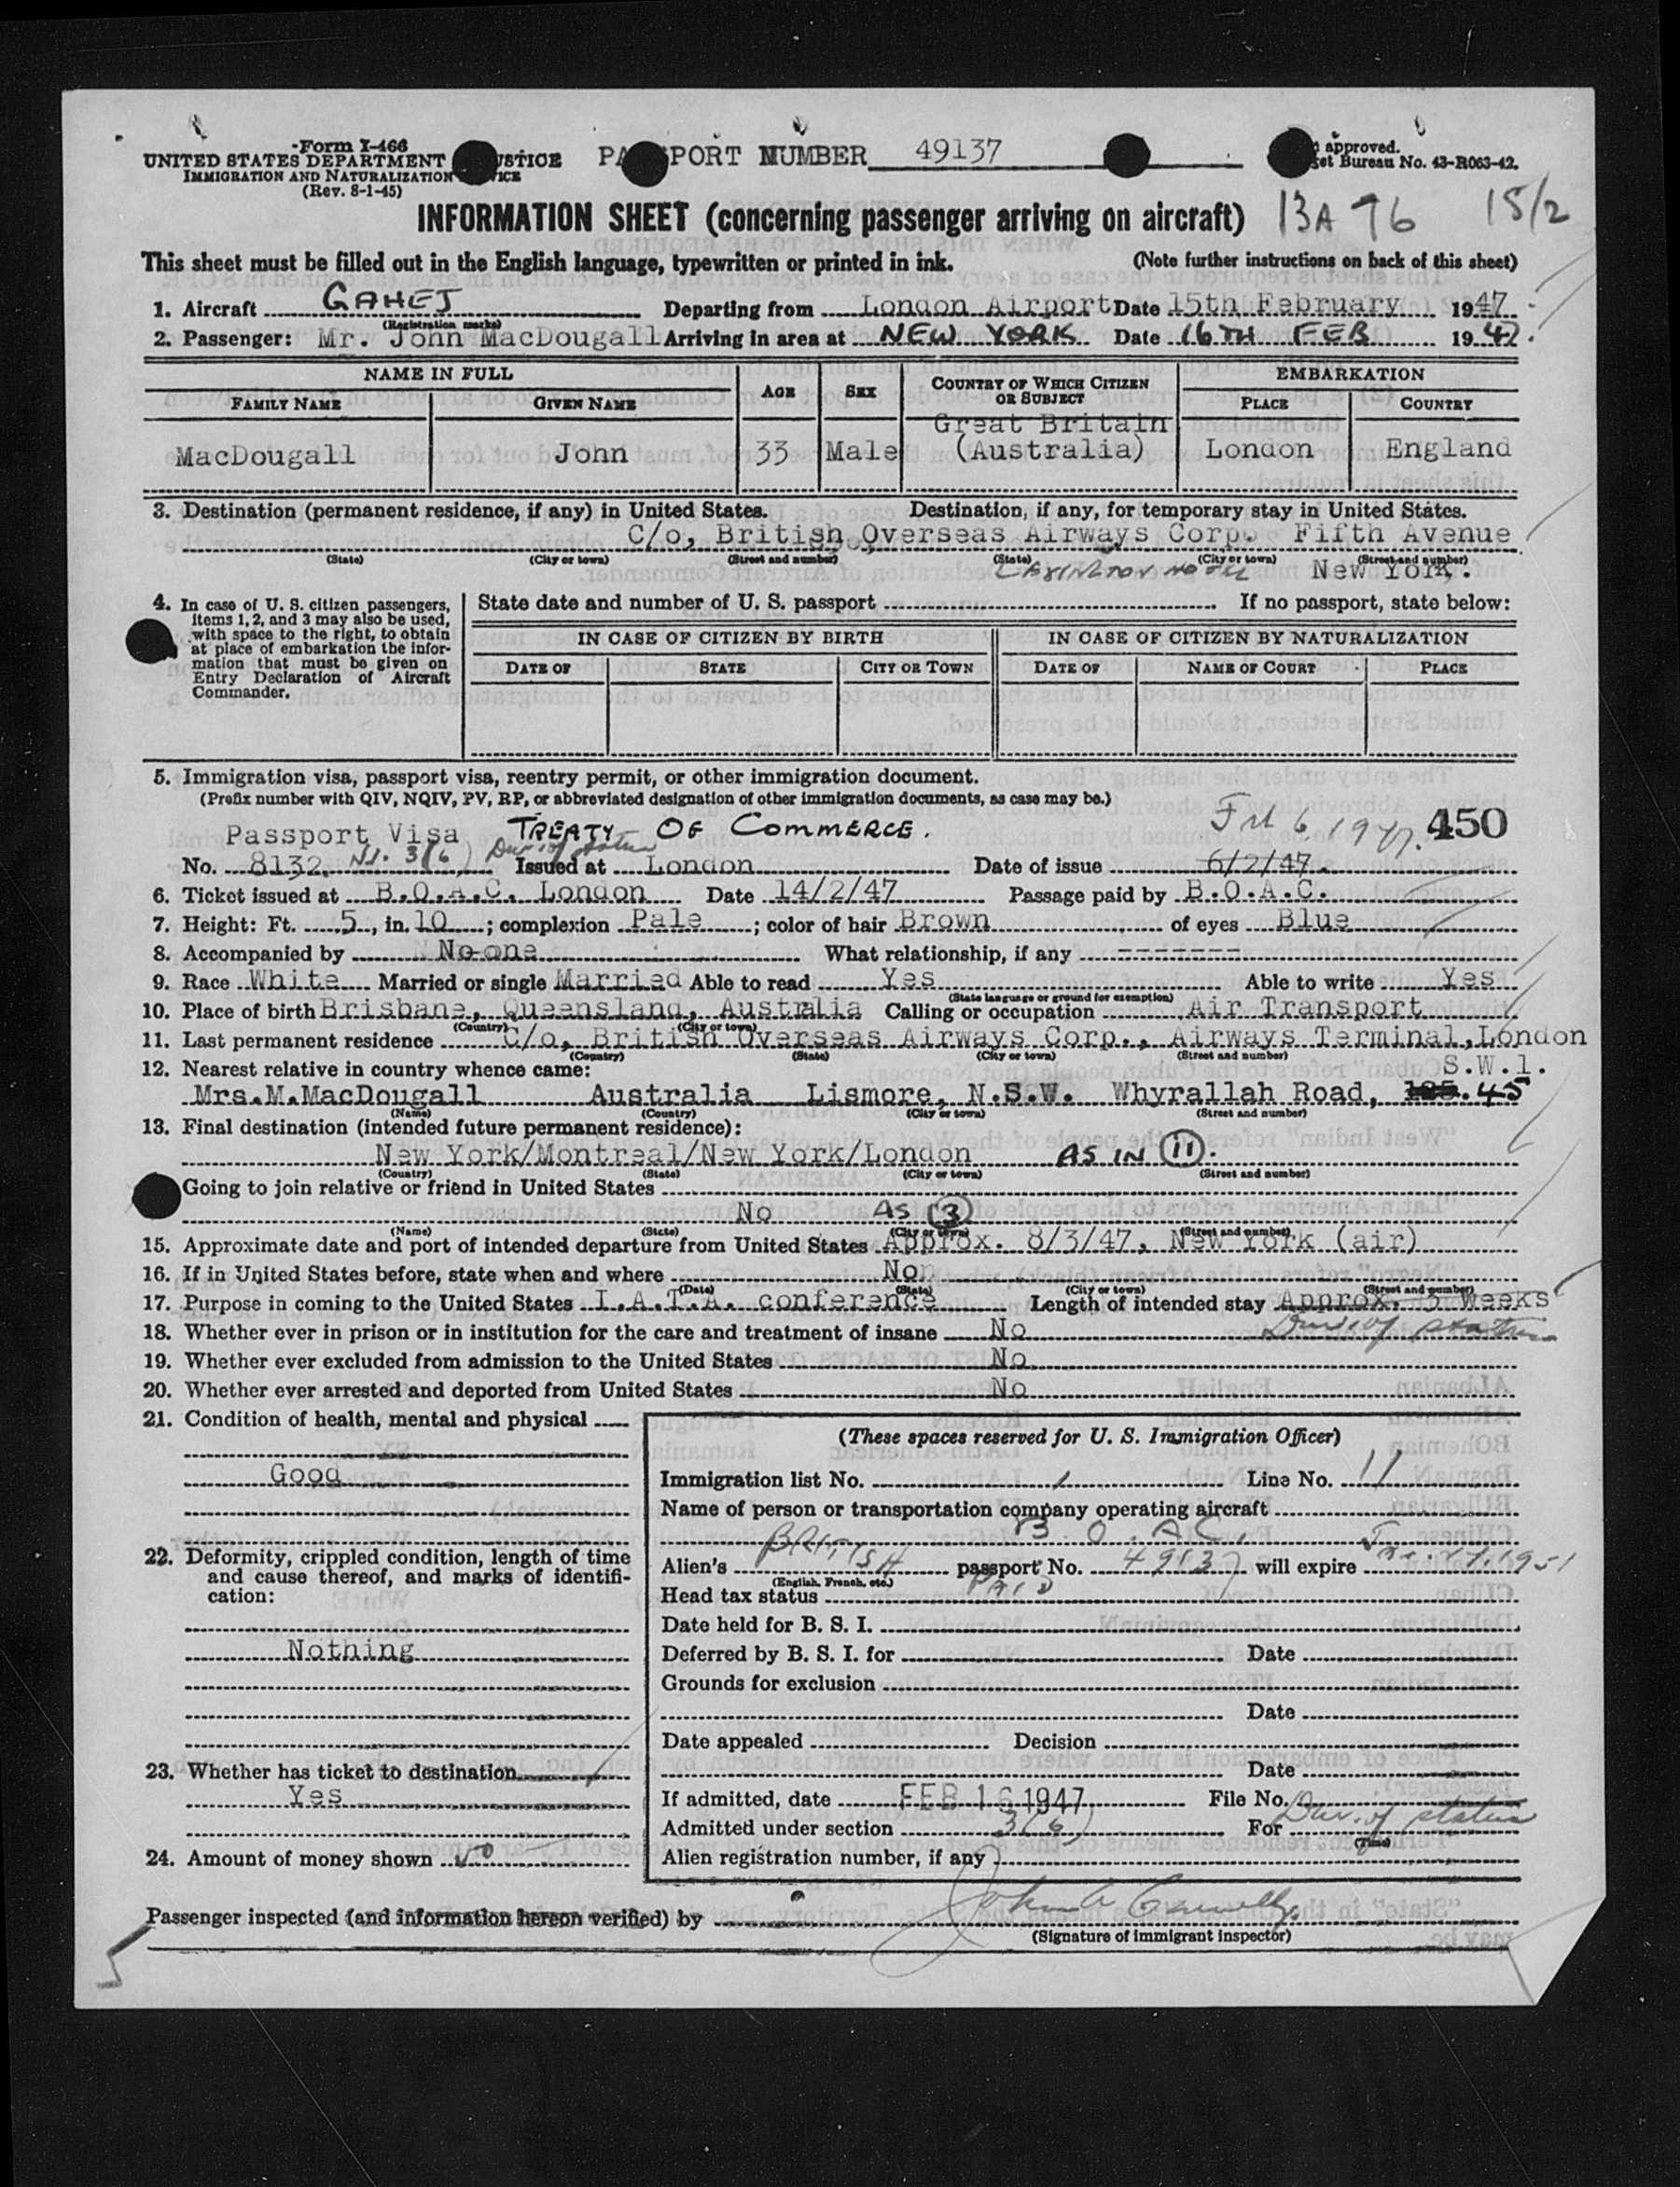 Form I-466
UNITED STATES DEPARTMENT JUSTICE PASSPORT NUMBER 49137 approved.
IMMIGRATION AND NATURALIZATION Bureau No. 43-R063-42.
(Rev. 8-1-45)
INFORMATION SHEET (concerning passenger arriving on aircraft) 13A 76 15/2
This sheet must be filled out in the English language, typewritten or printed in ink. (Note further instructions on back of this sheet)
1. Aircraft GAHEJ Departing from London Airport Date 15th February 1947
(Registration marks)
2. Passenger: Mr. John MacDougall Arriving in area at NEW YORK Date 16TH FEB 1947.
NAME IN FULL AGE SEX COUNTRY OF WHICH CITIZEN OR SUBJECT EMBARKATION
FAMILY NAME GIVEN NAME PLACE COUNTRY
Great Britain
MacDougall John 33 Male (Australia) London England
3. Destination (permanent residence, if any) in United States. Destination, if any, for temporary stay in United States.
C/o, British Overseas Airways Corp. Fifth Avenue
(State) (City or town) (Street and number) (State) (City or town) (Street and number)
LEXINGTON HOTEL New York.
4. In case of U. S. citizen passengers, items 1, 2, and 3 may also be used, with space to the right, to obtain at place of embarkation the information that must be given on Entry Declaration of Aircraft Commander.
State date and number of U. S. passport If no passport, state below:
IN CASE OF CITIZEN BY BIRTH IN CASE OF CITIZEN BY NATURALIZATION
DATE OF STATE CITY OR TOWN DATE OF NAME OF COURT PLACE
5. Immigration visa, passport visa, reentry permit, or other immigration document.
(Prefix number with QIV, NQIV, PV, RP, or abbreviated designation of other immigration documents, as case may be.)
Passport Visa TREATY OF COMMERCE. Feb 6, 1947. 450
No. 8132 3(6) Dur. of status Issued at London Date of issue 6/2/47.
6. Ticket issued at B.O.A.C. London Date 14/2/47 Passage paid by B.O.A.C.
7. Height: Ft. 5, in. 10; complexion Pale; color of hair Brown of eyes Blue
8. Accompanied by No one What relationship, if any -------
9. Race White Married or single Married Able to read Yes Able to write Yes
(State language or ground for exemption)
10. Place of birth Brisbane, Queensland, Australia Calling or occupation Air Transport
(Country) (City or town)
11. Last permanent residence C/o, British Overseas Airways Corp., Airways Terminal, London
(Country) (State) (City or town) (Street and number)
S.W.1.
12. Nearest relative in country whence came:
Mrs.M.MacDougall Australia Lismore, N.S.W. Whyrallah Road, 45
(Name) (Country) (City or town) (Street and number)
13. Final destination (intended future permanent residence):
New York/Montreal/New York/London AS IN (11).
(Country) (State) (City or town) (Street and number)
Going to join relative or friend in United States
No AS (3)
(Name) (State) (City or town) (Street and number)
15. Approximate date and port of intended departure from United States Approx. 8/3/47, New York (air)
16. If in United States before, state when and where No
(Date) (State) (City or town) (Street and number)
17. Purpose in coming to the United States I.A.T.A. conference Length of intended stay Approx. 3 Weeks
Dur. of status
18. Whether ever in prison or in institution for the care and treatment of insane No
19. Whether ever excluded from admission to the United States No
20. Whether ever arrested and deported from United States No
21. Condition of health, mental and physical
Good
22. Deformity, crippled condition, length of time and cause thereof, and marks of identification:
Nothing
23. Whether has ticket to destination
Yes
24. Amount of money shown
(These spaces reserved for U. S. Immigration Officer)
Immigration list No. 1 Line No. 11
Name of person or transportation company operating aircraft
B.O.A.C.
Alien's BRITISH passport No. 49137 will expire 1951
(English, French, etc.)
Head tax status PAID
Date held for B. S. I.
Deferred by B. S. I. for Date
Grounds for exclusion
Date
Date appealed Decision
Date
If admitted, date FEB 16 1947 File No.
Admitted under section 3(6) For Dur. of status
(Time)
Alien registration number, if any
Passenger inspected (and information hereon verified) by
(Signature of immigrant inspector)